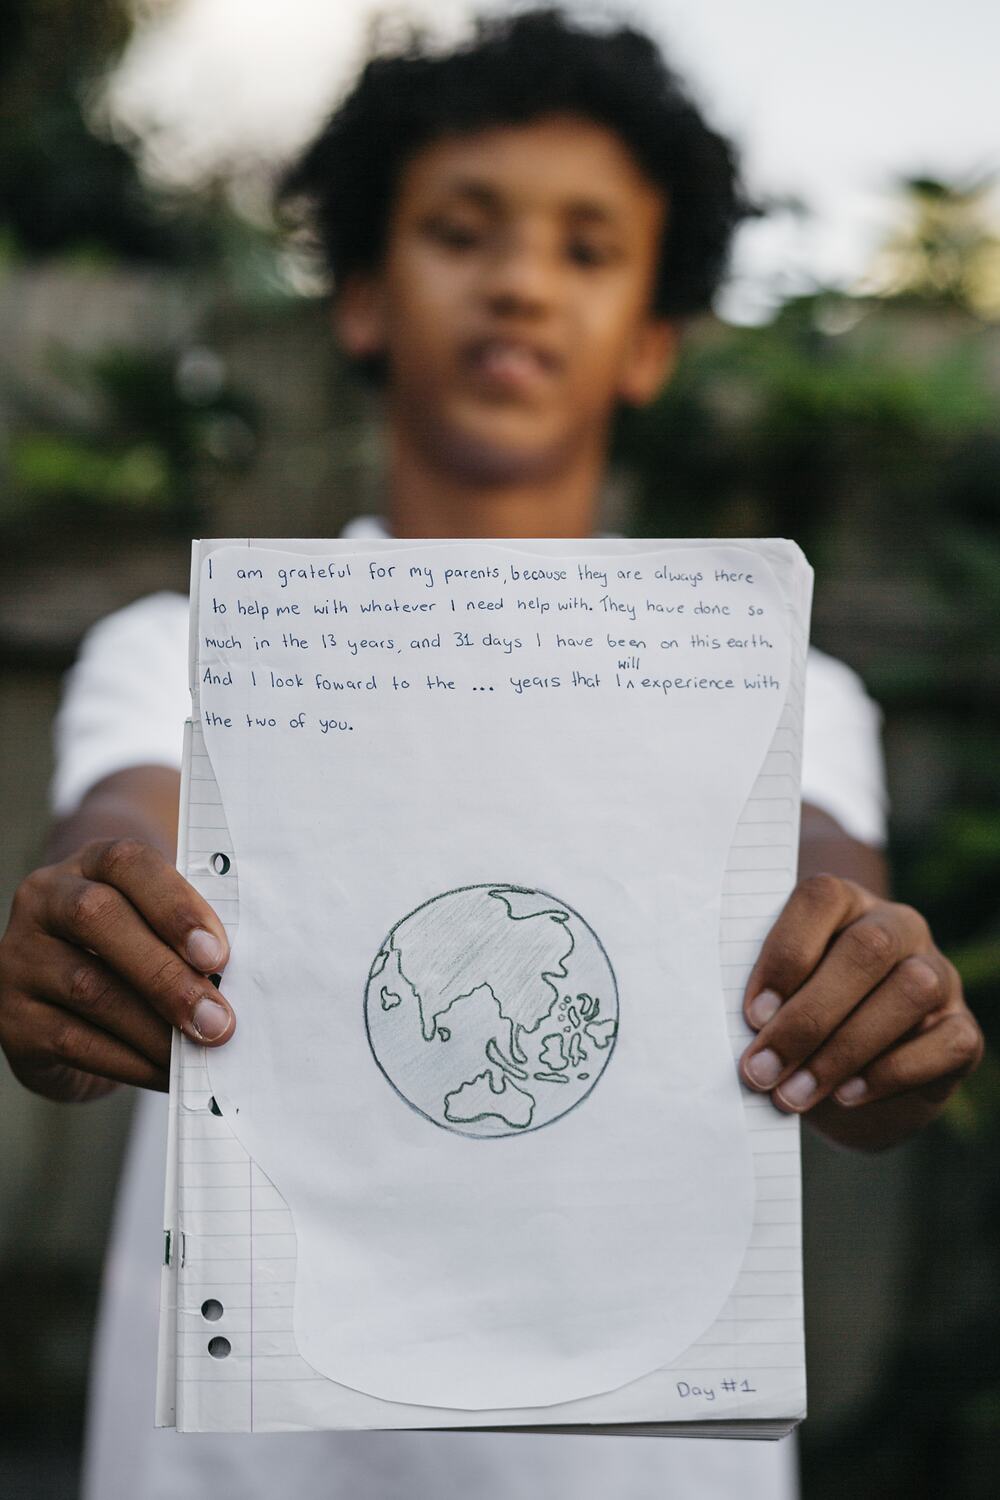 I am grateful for my parents, because they are always there
to help me with whatever I need help with. They have done so
much in the 13 years, and 31 days I have been on this earth.
will
And I look foward to the ... years that I ^ experience with
the two of you.
Day #1